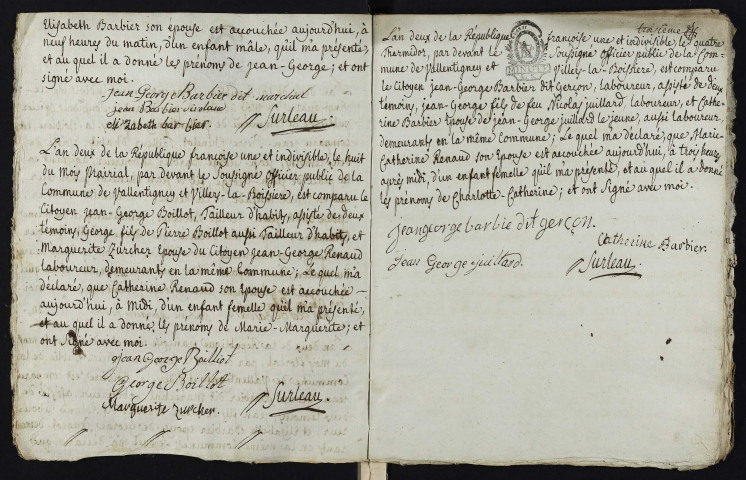 Elisabeth Barbier son épouse est accouchée aujourd'hui, à
neuf heures du matin, d'un enfant mâle, qu'il m'a présenté,
et au quel il a donné les prénoms de jean-George; et ont
signé avec moi.
Jean George Barbier dit marchal
jean Barbier
elizabeth barbier Surleau
L'an deux de la République françoise une et indivisible, le huit
du Mois Prairial, par devant le Soussigné officier public de la
Commune de Vallentigney et Villers-la-Boissiere, est comparu le
Citoyen jean-George Boillot, Tailleur d'habits, assisté de deux
témoins, George fils de Pierre Boillot aussi Tailleur d'habits, et
Marguerite Zurcher Epouse du Citoyen jean-George Renaud
laboureur, demeurants en la même Commune; Le quel m'a
déclaré, que Catherine Renaud son Epouse est accouchée
aujourd'hui, à Midi, d'un enfant femelle qu'il m'a présenté,
et au quel il a donné les prénoms de Marie-Marguerite; et
ont Signé avec moi.
jean George Boilliot
George Boillot
Marguerite Zurcher Surleau
troisième
L'an deux de la République françoise une et indivisible le quatre
Thermidor, par devant le Soussigné officier public de la Com-
mune de Vallentigney et Villers-la-Boissiere, est comparu
le Citoyen jean-George Barbier dit Gerçon, laboureur, assisté de deux
témoins, jean-George fils de feu Nicolas juillard, laboureur, et Cathe-
rine Barbier Epouse de jean-George juillard le jeune, aussi laboureur
demeurants en la même Commune; Le quel m'a déclaré, que Marie-
Catherine Renaud son Epouse est accouchée aujourd'hui, à trois heures
après midi, d'un enfant femelle qu'il m'a présenté, et au quel il a donné
les prénoms de Charlotte-Catherine; et ont Signé avec moi.
Jean george barbie dit gerçon.
Catherine Barbier
Jean George juillard. Surleau